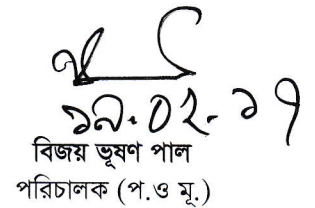 ১৯.০২.১৭
বিজয় ভূষণ পাল
পরিচালক (প.ও মূ.)